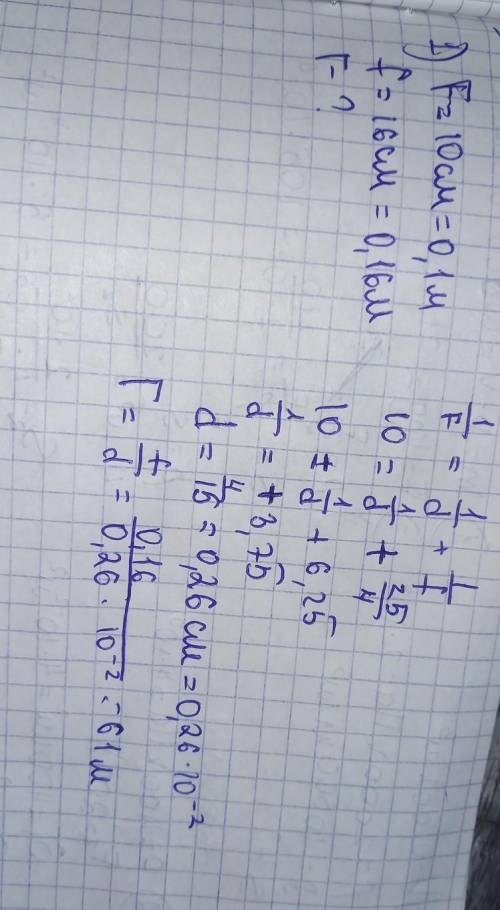 1) F = 10см = 0,1м
f = 16см = 0,16м
Г - ?
1/F = 1/d + 1/f
10 = 1/d + 25/4
10 = 1/d + 6,25
1/d = +3,75
d = 4/15 = 0,26 см = 0,26 · 10⁻²
Г = f/d = 0,16/0,26 · 10⁻² = 61 м